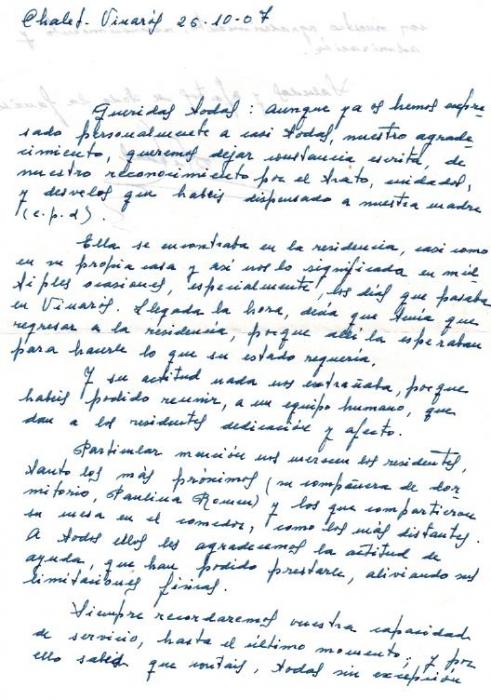 Chalet-Vinarós 26-10-07
Queridas todas: aunque ya os hemos expre
sado personalmente a casi todas, nuestro agrade-
cimiento, queremos dejar constancia escrita, de
nuestro reconocimiento por el trato, cuidados,
y desvelos que habéis dispensado a nuestra madre
(e.p.d).
Ella se encontraba en la residencia, casi como
en su propia casa y así nos lo significaba en múl
tiples ocasiones, especialmente, los días que pasaba
en Vinarós. Llegada la hora, decía que tenía que
regresar a la residencia, porque allí la esperaban
para hacerle lo que su estado requería.
Y su actitud nada nos extrañaba, porque
habéis podido reunir, a un equipo humano, que
dan a los residentes dedicación y afecto.
Particular mención nos merecen los residentes,
tanto los más próximos (su compañera de dor-
mitorio, Paulina Romeu) y los que compartieron
su mesa en el comedor, como los más distantes.
A todos ellos les agradecemos la actitud de
ayuda, que han podido prestarle, aliviando sus
limitaciones físicas.
Siempre recordaremos vuestra capacidad
de servicio, hasta el último momento; y por
ello sabed que contáis, todas sin excepción